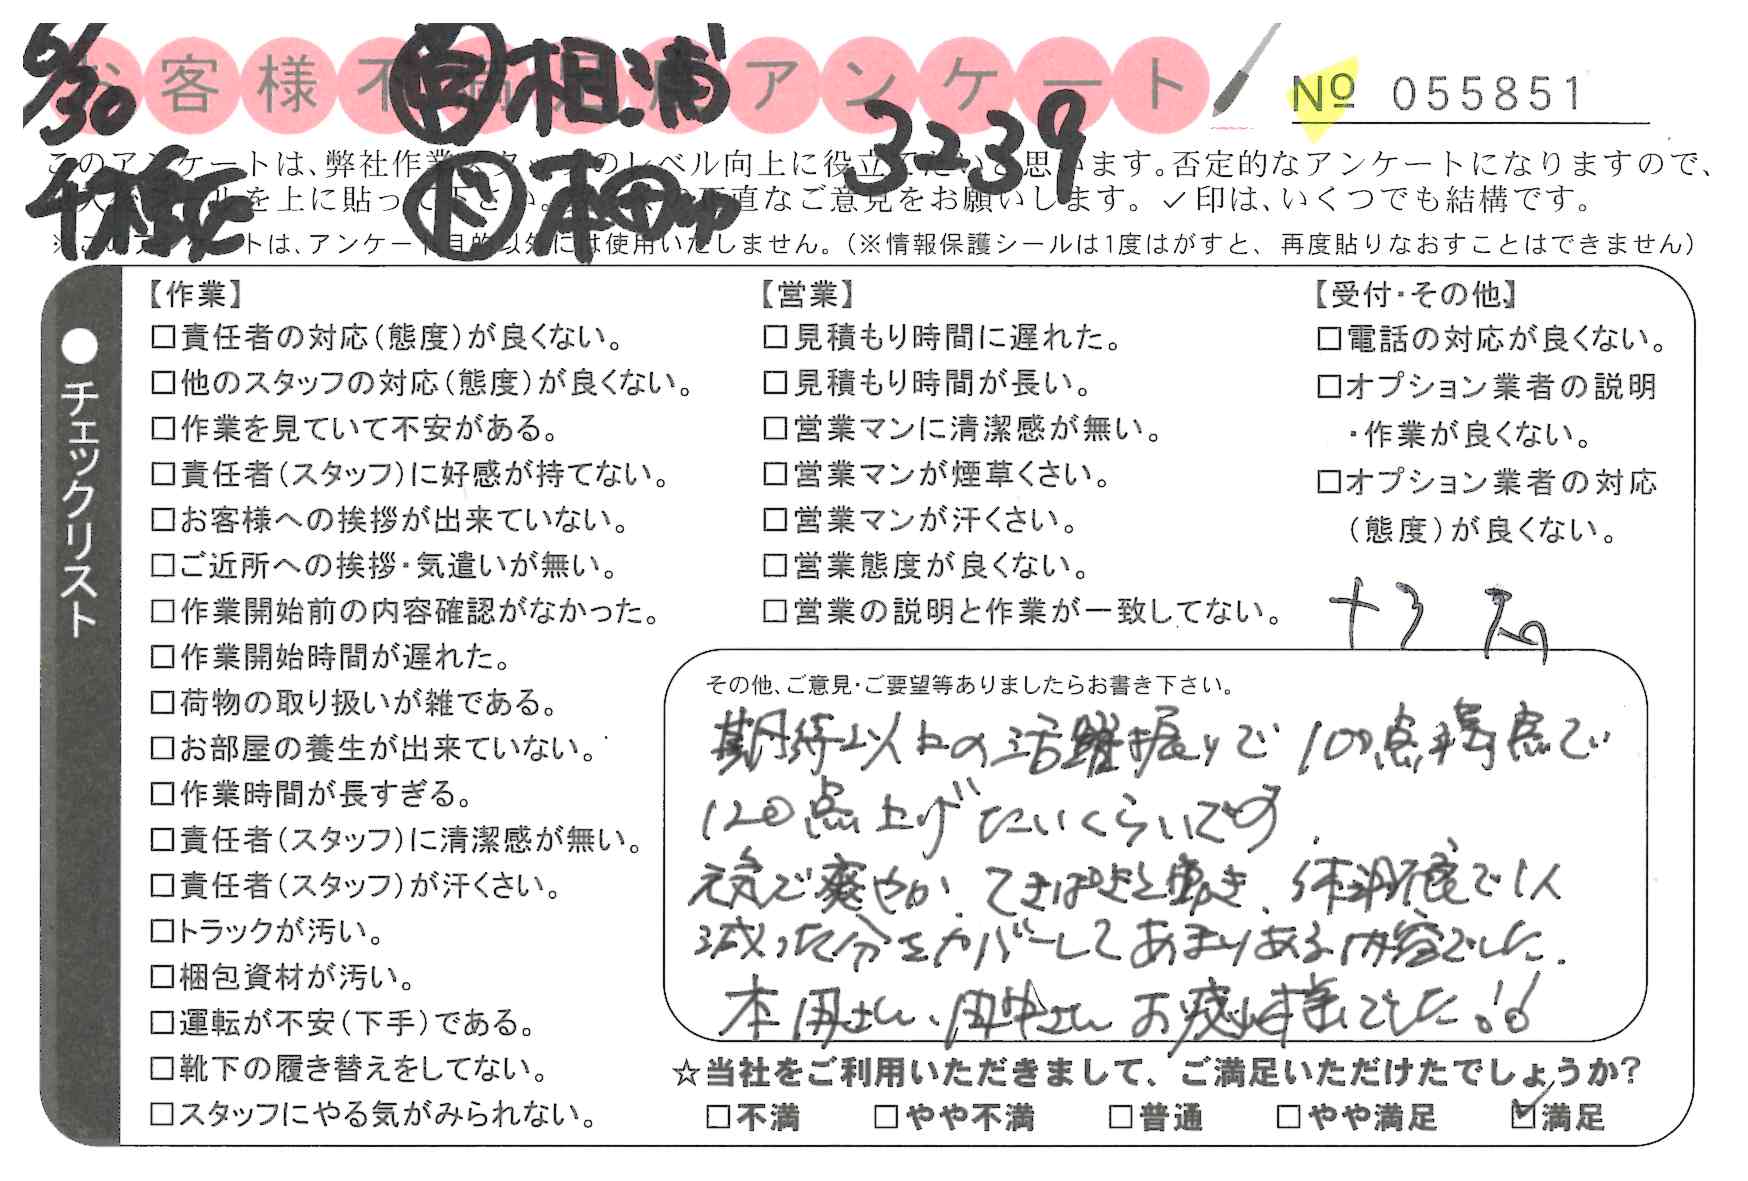 6/30
お客様不満足度アンケート
相浦
3239
№ 055851
このアンケートは、弊社作業スタッフのレベル向上に役立てたいと思います。否定的なアンケートになりますので、
を上に貼って下さい。正直なご意見をお願いします。✓印は、いくつでも結構です。
本田
※このアンケートは、アンケート目的以外には使用いたしません。（※情報保護シールは1度はがすと、再度貼りなおすことはできません）
●チェックリスト
【作業】
□責任者の対応（態度）が良くない。
□他のスタッフの対応（態度）が良くない。
□作業を見ていて不安がある。
□責任者（スタッフ）に好感が持てない。
□お客様への挨拶が出来ていない。
□ご近所への挨拶・気遣いが無い。
□作業開始前の内容確認がなかった。
□作業開始時間が遅れた。
□荷物の取り扱いが雑である。
□お部屋の養生が出来ていない。
□作業時間が長すぎる。
□責任者（スタッフ）に清潔感が無い。
□責任者（スタッフ）が汗くさい。
□トラックが汚い。
□梱包資材が汚い。
□運転が不安（下手）である。
□靴下の履き替えをしてない。
□スタッフにやる気がみられない。
【営業】
□見積もり時間に遅れた。
□見積もり時間が長い。
□営業マンに清潔感が無い。
□営業マンが煙草くさい。
□営業マンが汗くさい。
□営業態度が良くない。
□営業の説明と作業が一致してない。
【受付・その他】
□電話の対応が良くない。
□オプション業者の説明
・作業が良くない。
□オプション業者の対応
（態度）が良くない。
+3
その他、ご意見・ご要望等ありましたらお書き下さい。
期待以上の活躍振りで100点満点で
120点上げたいくらいです
元気で爽やか、てきぱきと動き、体調不良で1人
減った分をカバーしてあまりある内容でした.
本田さん、田中さん お疲れ様でした!!
☆当社をご利用いただきまして、ご満足いただけたでしょうか？
□不満 □やや不満 □普通 □やや満足 ☑満足